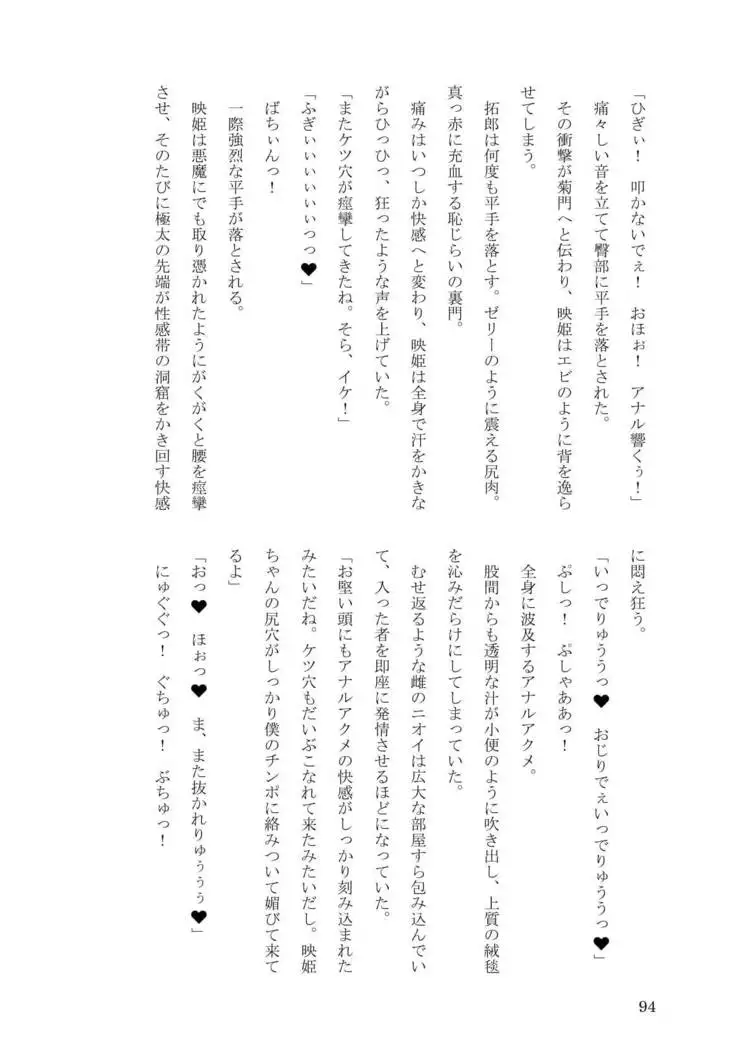 「ひぎぃ！　叩かないでぇ！　おほぉ！　アナル響くぅ！」
痛々しい音を立てて臀部に平手を落とされた。
その衝撃が菊門へと伝わり、映姫はエビのように背を逸ら
せてしまう。
拓郎は何度も平手を落とす。ゼリーのように震える尻肉。
真っ赤に充血する恥じらいの裏門。
痛みはいつしか快感へと変わり、映姫は全身で汗をかきな
がらひっひっ、狂ったような声を上げていた。
「またケツ穴が痙攣してきたね。そら、イケ！」
「ふぎぃぃぃぃぃぃっっ♥」
ばちぃんっ！
一際強烈な平手が落とされる。
映姫は悪魔にでも取り憑かれたようにがくがくと腰を痙攣
させ、そのたびに極太の先端が性感帯の洞窟をかき回す快感
に悶え狂う。
「いっでりゅううっ♥　おじりでぇいっでりゅううっ♥」
ぷしっ！　ぷしゃああっ！
全身に波及するアナルアクメ。
股間からも透明な汁が小便のように吹き出し、上質の絨毯
を沁みだらけにしてしまっていた。
むせ返るような雌のニオイは広大な部屋すら包み込んでい
て、入った者を即座に発情させるほどになっていた。
「お堅い頭にもアナルアクメの快感がしっかり刻み込まれた
みたいだね。ケツ穴もだいぶこなれて来たみたいだし。映姫
ちゃんの尻穴がしっかり僕のチンポに絡みついて媚びて来て
るよ」
「おっ♥　ほぉっ♥　ま、また抜かれりゅぅぅぅ♥」
にゅぐぐっ！　ぐちゅっ！　ぶちゅっ！
94